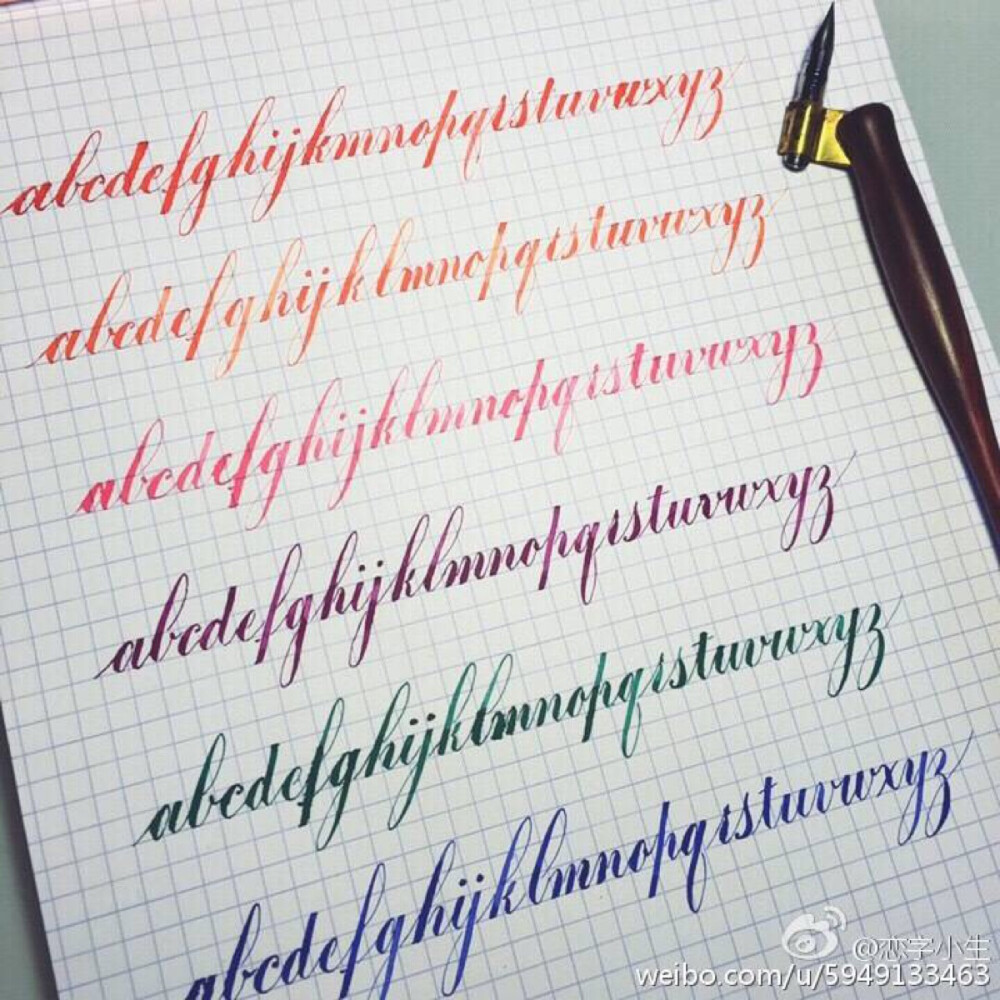 abcdefghijkmnopqrstuvwxyz
abcdefghijklmnopqrstuvwxyz
abcdefghijklmnopqrstuvwxyz
abcdefghijklmnopqrstuvwxyz
abcdefghijklmnopqrstuvwxyz
abcdefghijklmnopqrstuvwxyz
@恋字小生
weibo.com/u/5949133463